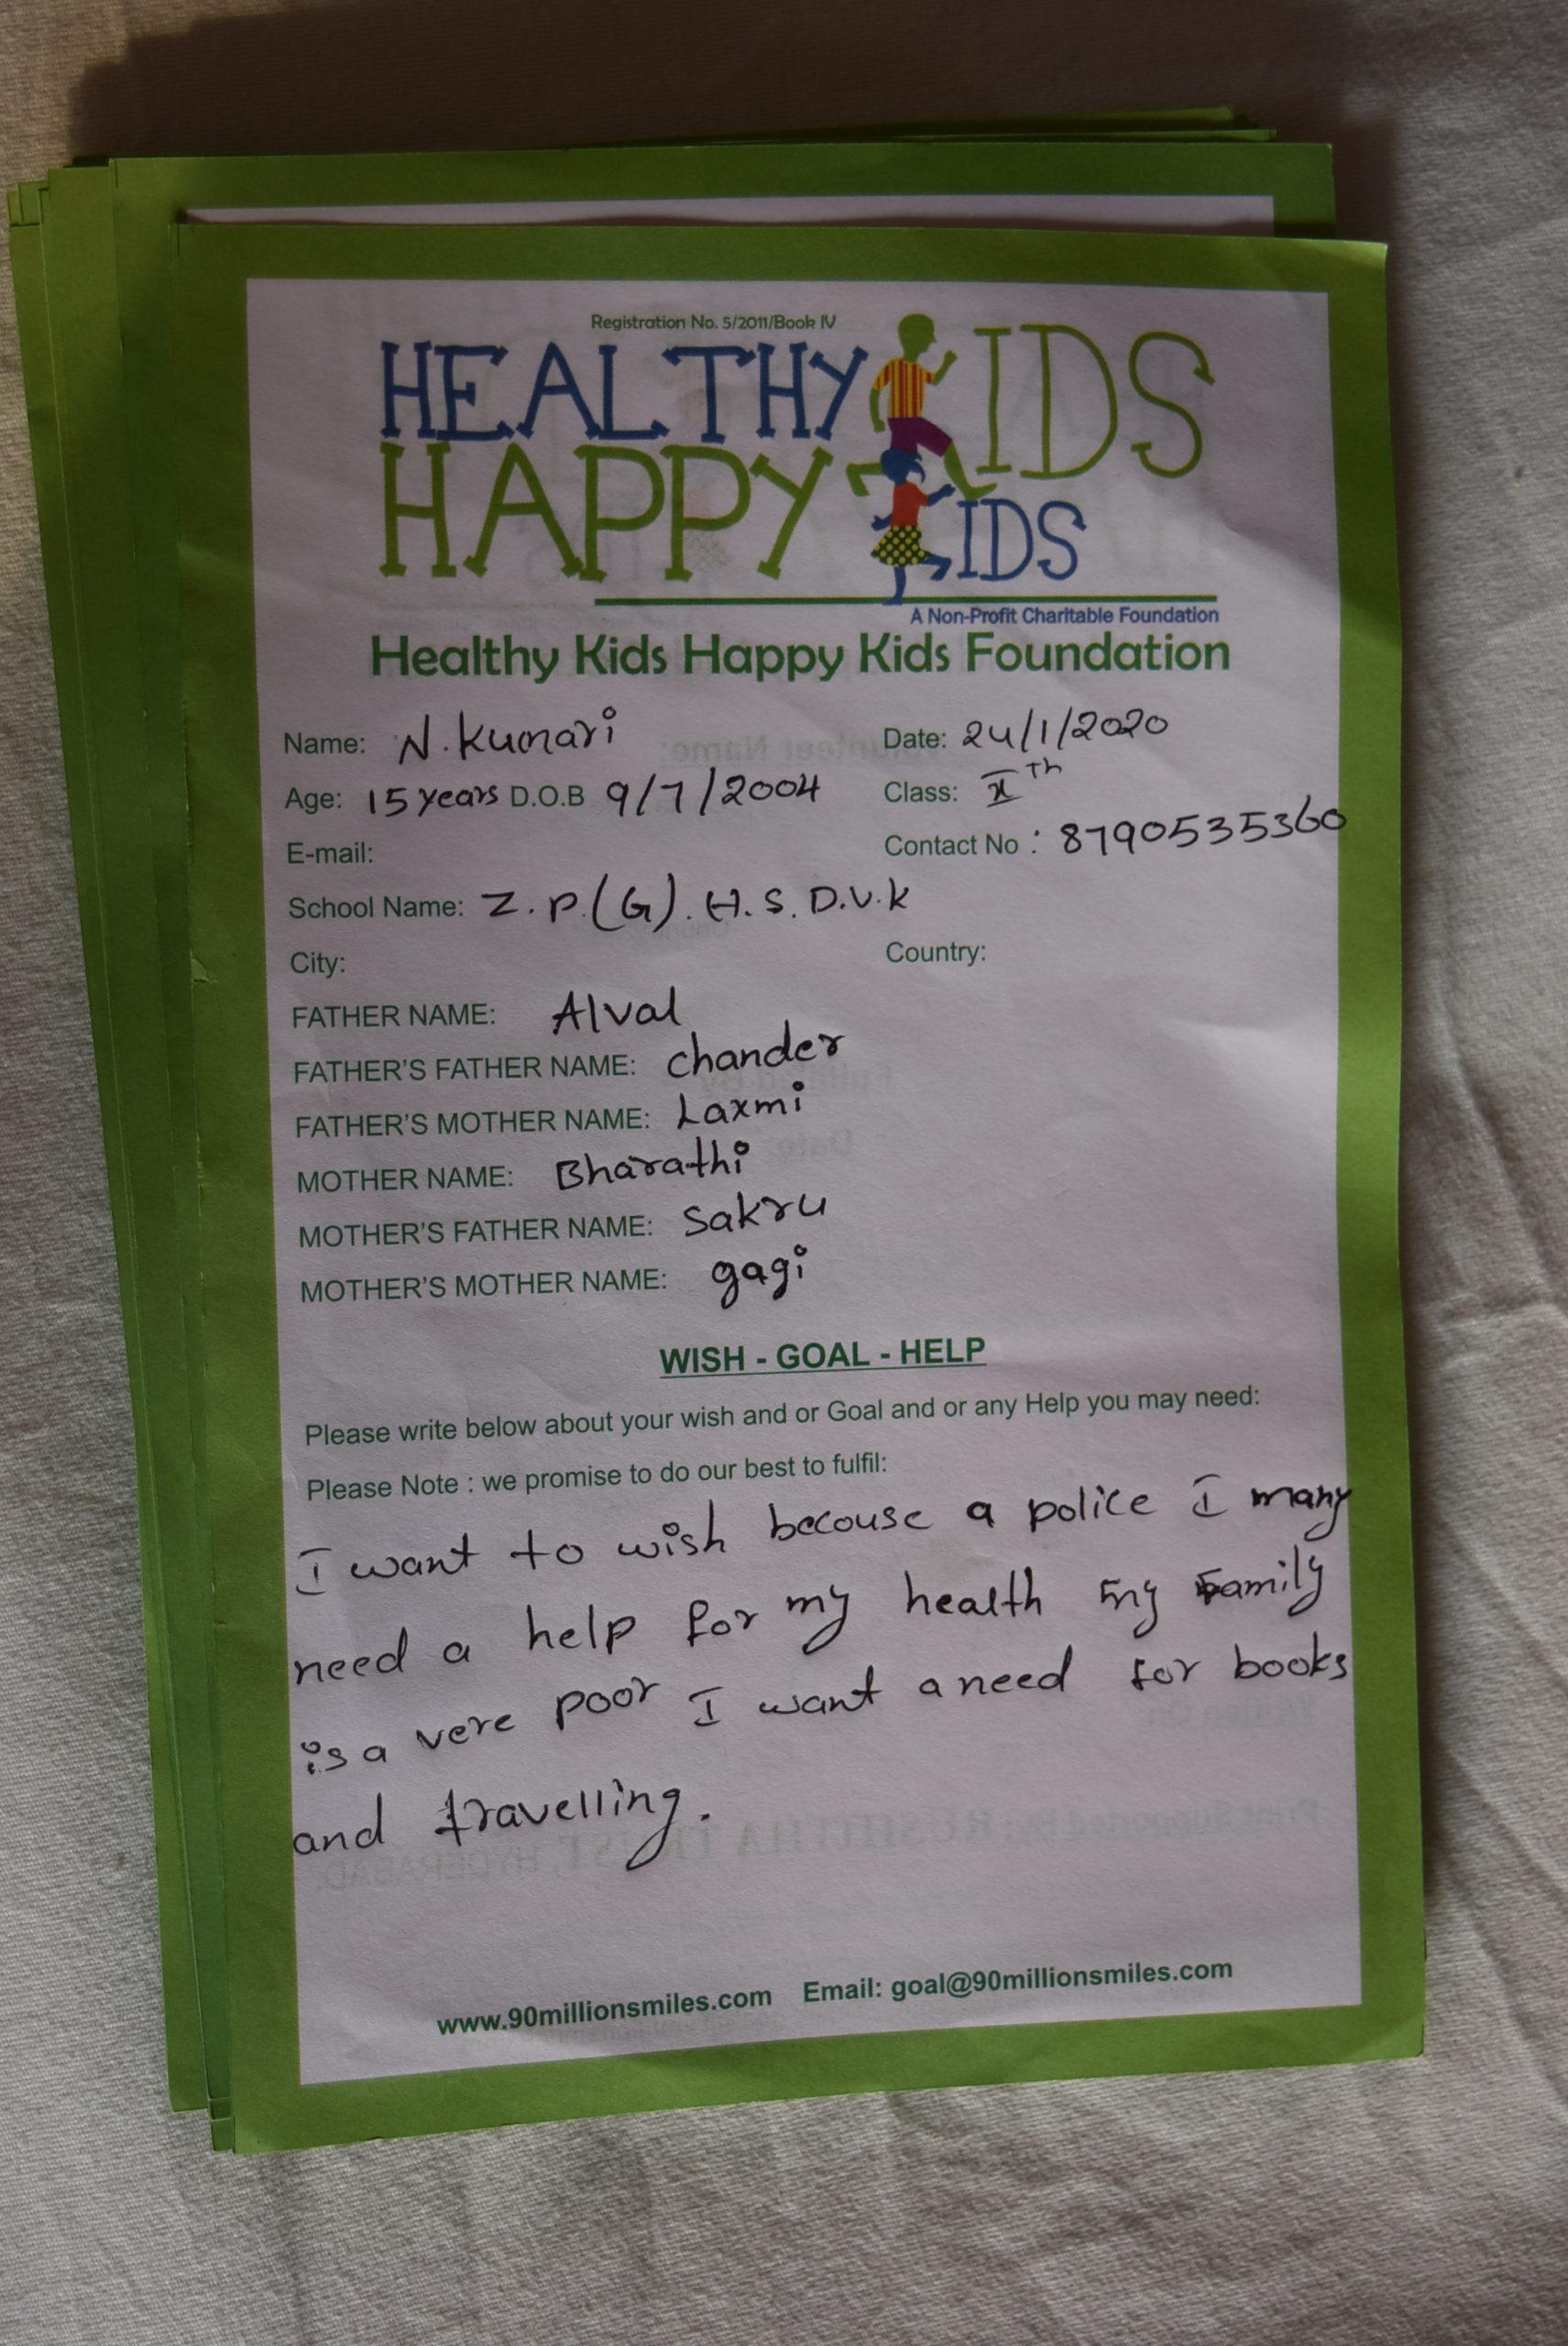 Registration No. 5/2011/Book IV
HEALTHY KIDS
HAPPY KIDS
A Non-Profit Charitable Foundation
Healthy Kids Happy Kids Foundation
Name: N. Kumari Date: 24/1/2020
Age: 15 years D.O.B 9/7/2004 Class: X Th
E-mail: Contact No : 8790535360
School Name: Z. P. (G). H. S. D.V.K
City: Country:
FATHER NAME: Alval
FATHER'S FATHER NAME: chander
FATHER'S MOTHER NAME: Laxmi
MOTHER NAME: Bharathi
MOTHER'S FATHER NAME: Sakru
MOTHER'S MOTHER NAME: gagi
WISH - GOAL - HELP
Please write below about your wish and or Goal and or any Help you may need:
Please Note : we promise to do our best to fulfil:
I want to wish becouse a police I many
need a help for my health my Family
is a vere poor I want a need for books
and travelling.
www.90millionsmiles.com Email: goal@90millionsmiles.com